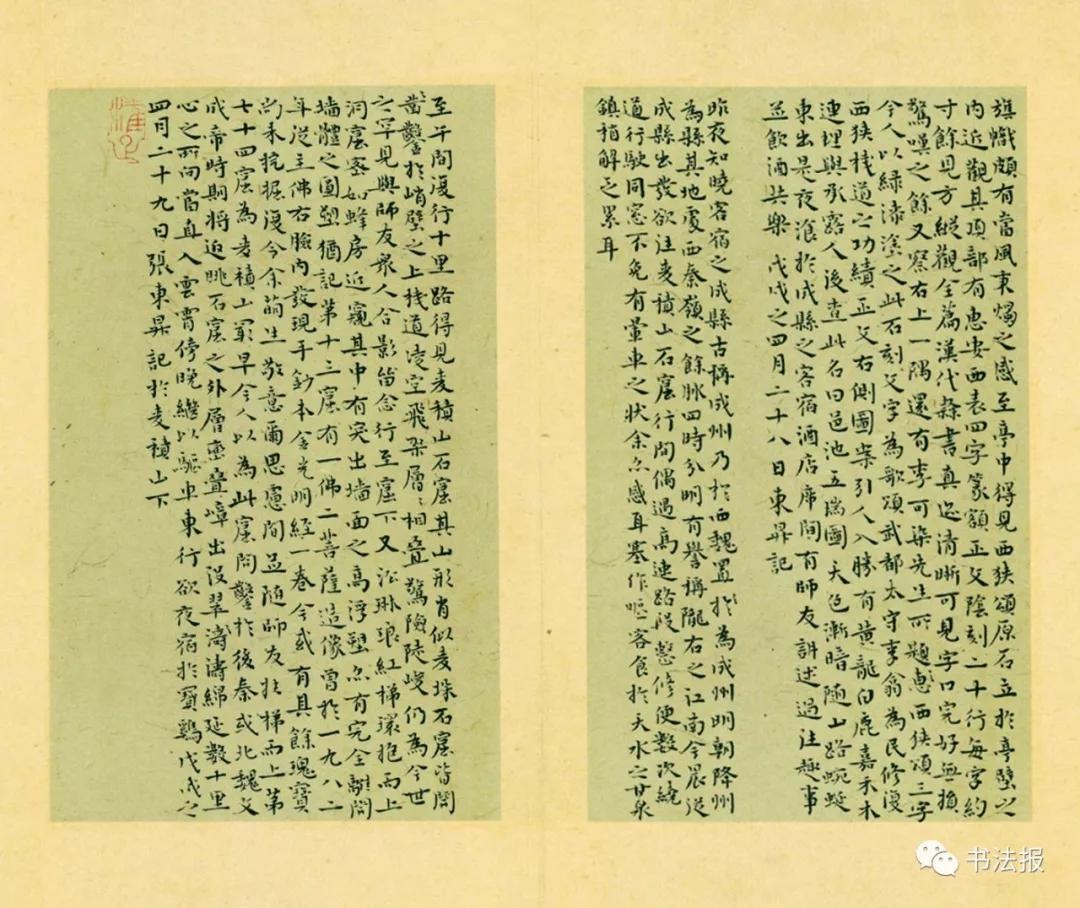 旗幟頗有當風秉燭之感至亭中得見西狹頌原石立於亭壁之
内近觀其頂部有惠安西表四字篆額正文陰刻二十行每字約
寸餘見方縱觀全篇漢代隸書真迹清晰可見字口完好無損
驚嘆之餘又察右上一隅還有李可染先生所題惠西狹頌三字
今人以緑漆塗之此石刻文字為歌頌武都太守李翕為民修復
西狹棧道之功績正文右側圖案引人入勝有黃龍白鹿嘉禾木
連理與承露人後查此名曰邑池五瑞圖天色漸暗随山路蜿蜒
東出是夜飡於成縣之客宿酒店席間有師友講述過往趣事
並飲酒共樂 戊戌之四月二十八日東昇記
昨夜知曉客宿之成縣古稱成州乃於西魏置於為成州明朝降州
為縣其地處西秦嶺之餘脉四時分明有譽稱隴右之江南今晨從
成縣出發欲往麦積山石窟行間偶遇高速路段整修便數次繞
道行駛同窓不免有暈車之狀余亦感耳塞作嘔客食於天水之甘泉
鎮稍解乏累耳
至午間復行十里路得見麦積山石窟其山形肖似麦垛石窟皆開
凿鑿於峭壁之上棧道凌空飛架層〻相叠驚險陡峻仍為今世
之罕見與師友衆人合影留念行至窟下又沿琳琅紅梯環抱而上
洞窟密如蜂房近窺其中有突出墻面之高浮塑亦有完全離開
墻體之圓塑猶記第十三窟有一佛二菩薩造像曾於一九八二
年從主佛右臉内發現手鈔本金光明經一卷今或有其餘瑰寶
尚未挖掘復今余萌生敬意爾思慮間且随師友扶梯而上第
七十四窟為麦積山最早今人以為此窟開鑿於後秦或北魏文
成帝時期将近眺石窟之外層巒叠嶂出没翠濤濤綿延數十里
心之所向當直入雲霄傍晚繼以驅車東行欲夜宿於寶鷄戊戌之
四月二十九日張東昇記於麦積山下
书法报